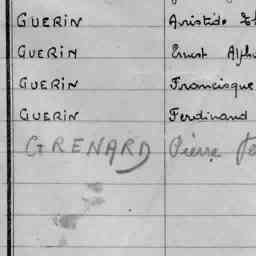 GUERIN Aristide
GUERIN Ernest
GUERIN Francisque
GUERIN Ferdinand
GRENARD Pierre